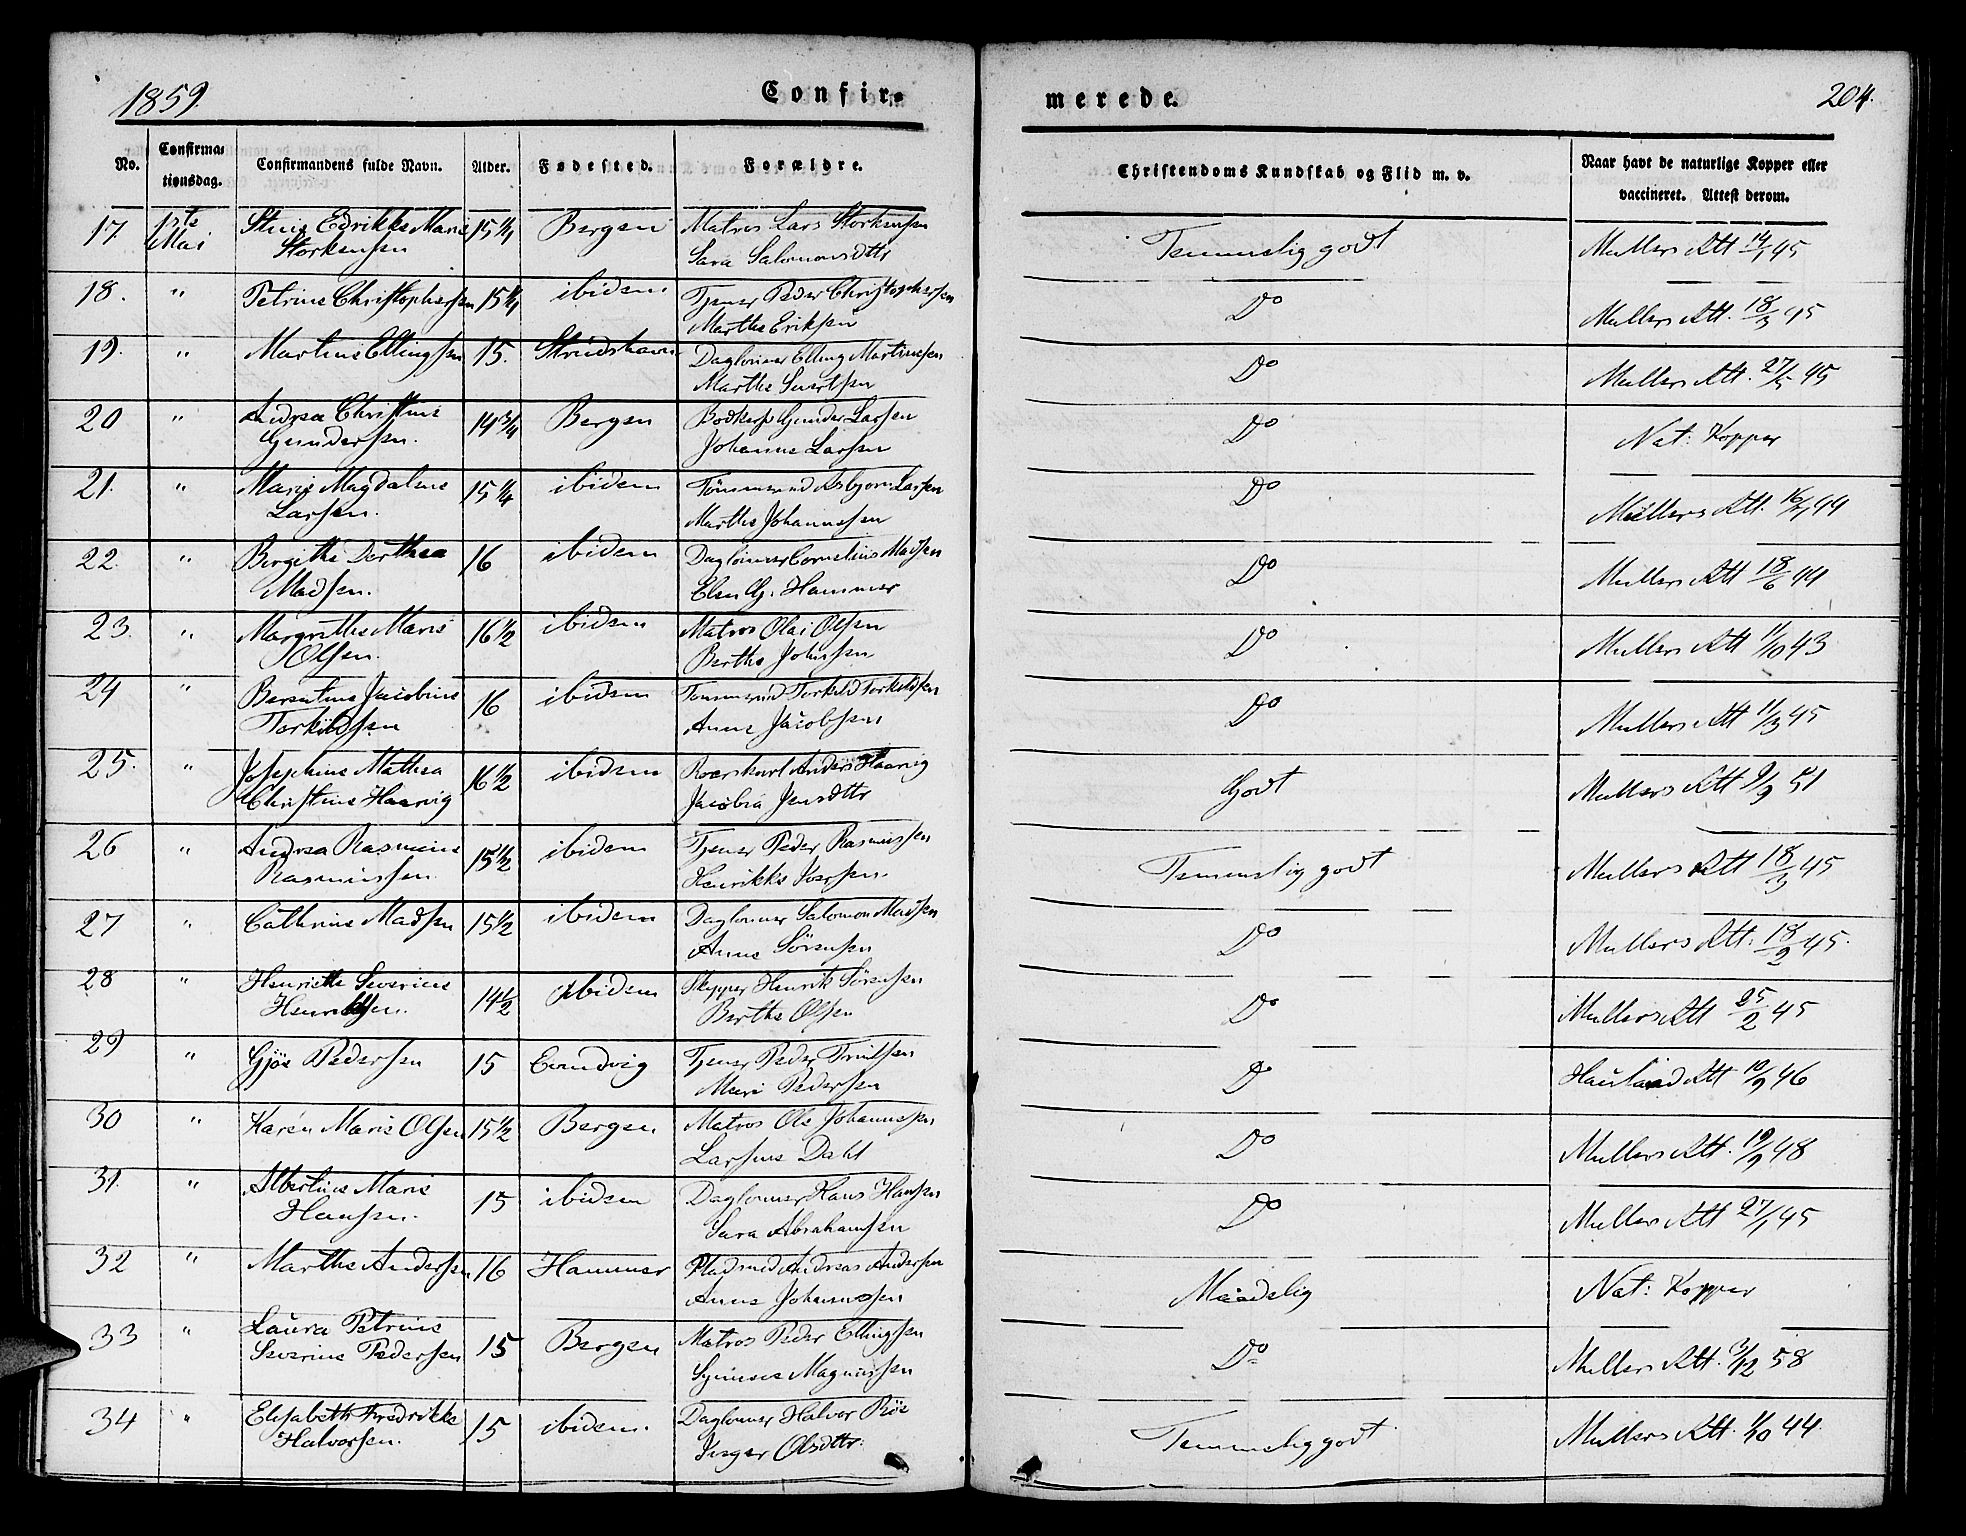 1859.
Confir-
merede.
204.
No.
Confirma-
tionsdag.
Confirmandens fulde Navn.
Alder.
Fødested.
Forældre.
Christendoms Kundskab og Flid m. v.
Naar havt de naturlige Kopper eller
vaccineret. Attest derom.
17. 1ste Stine Edrikke Marie 15 1/4 Bergen Matros Lars Storksen Temmelig godt Mullers Att 14/1 45
Mai Storksen Sara Salomonsdttr
18. " Petrine Christophersen 15 1/4 ibidem Tjener Peder Christophersen Do Mullers Att. 18/3 45
Marthe Eriksen
19. " Martine Ellingsen 15. Strudshavn Dagloner Elling Martinesen Do Mullers Att. 27/5 45
Marthe
20 " Andrea Christine 14 3/4 Bergen Gunder Larsen Do Nat: Kopper
Gundersen. Johanne Larsen
21. " Marie Magdalene 15 1/4 ibidem Tömmermd Asbjorn Larsen Do Müllers Att. 16/ 44
Larsen. Marthe Johannesen
22. " Bergithe Dorthea 16 ibidem Dagloner Cornelius Madsen Do Mullers Att 18/6 44
Madsen. Elen G. Hammer
23. " Margrethe Marie 16 1/2 ibidem Matros Olai Olsen Do Mullers Att 11/10 43
Olsen. Berthe Johnsen
24 " Berentine Jacobine 16 ibidem Tommermd Torkild Torkildsen Do Mullers Att 11/3 45
Torkildsen Anne Jacobsen
25. " Josephine Mathea 16 1/2 ibidem Roerskarl Anders Haavig Godt Mullers Att 9/9 51
Christine Haavig Jacobia Jensdttr
26 " Andrea Rasmine 15 1/2 ibidem Tjener Peder Rasmussen Temmelig godt Mullers Att 18/3 45
Rasmussen Henrikke
27 " Cathrine Madsen 15 1/2 ibidem Dagloner Salomon Madsen Do Mullers Att. 18/2 45.
Anne Sörensen
28 " Henriette Severine 14 1/2 ibidem Skipper Henrik Sörensen Do Mullers Att 25/2 45
Henriksen. Berthe Olsen
29 " Gjöe Pedersen 15 Evindvig Tjener Peder Do Hauland Att 10/9 46
Mari Pedersen
30 " Karen Marie Olsen 15 1/2 Bergen Matros Ole Johannesen Do Mullers Att. 19/9 48
Larsine Dahl
31. " Albertine Marie 15 ibidem Dagloner Hans Hansen Do Mullers Att 27/1 45
Hansen. Sara Abrahamsen
32 " Marthe Andersen 16 Hammer Pladsmd Andreas Andersen Maadelig Nat: Kopper
Anne Johannesen
33 " Laura Petrine 15 Bergen Matros Peder Ellingsen Do Mullers Att. 3/12 58
Severine Pedersen Magnussen
34 " Elisabeth Fredrikke 15 ibidem. Dagloner Halvor Röe Temmelig godt Mullers Att. 1/10 44.
Halvorsen. Inger Olsdttr.